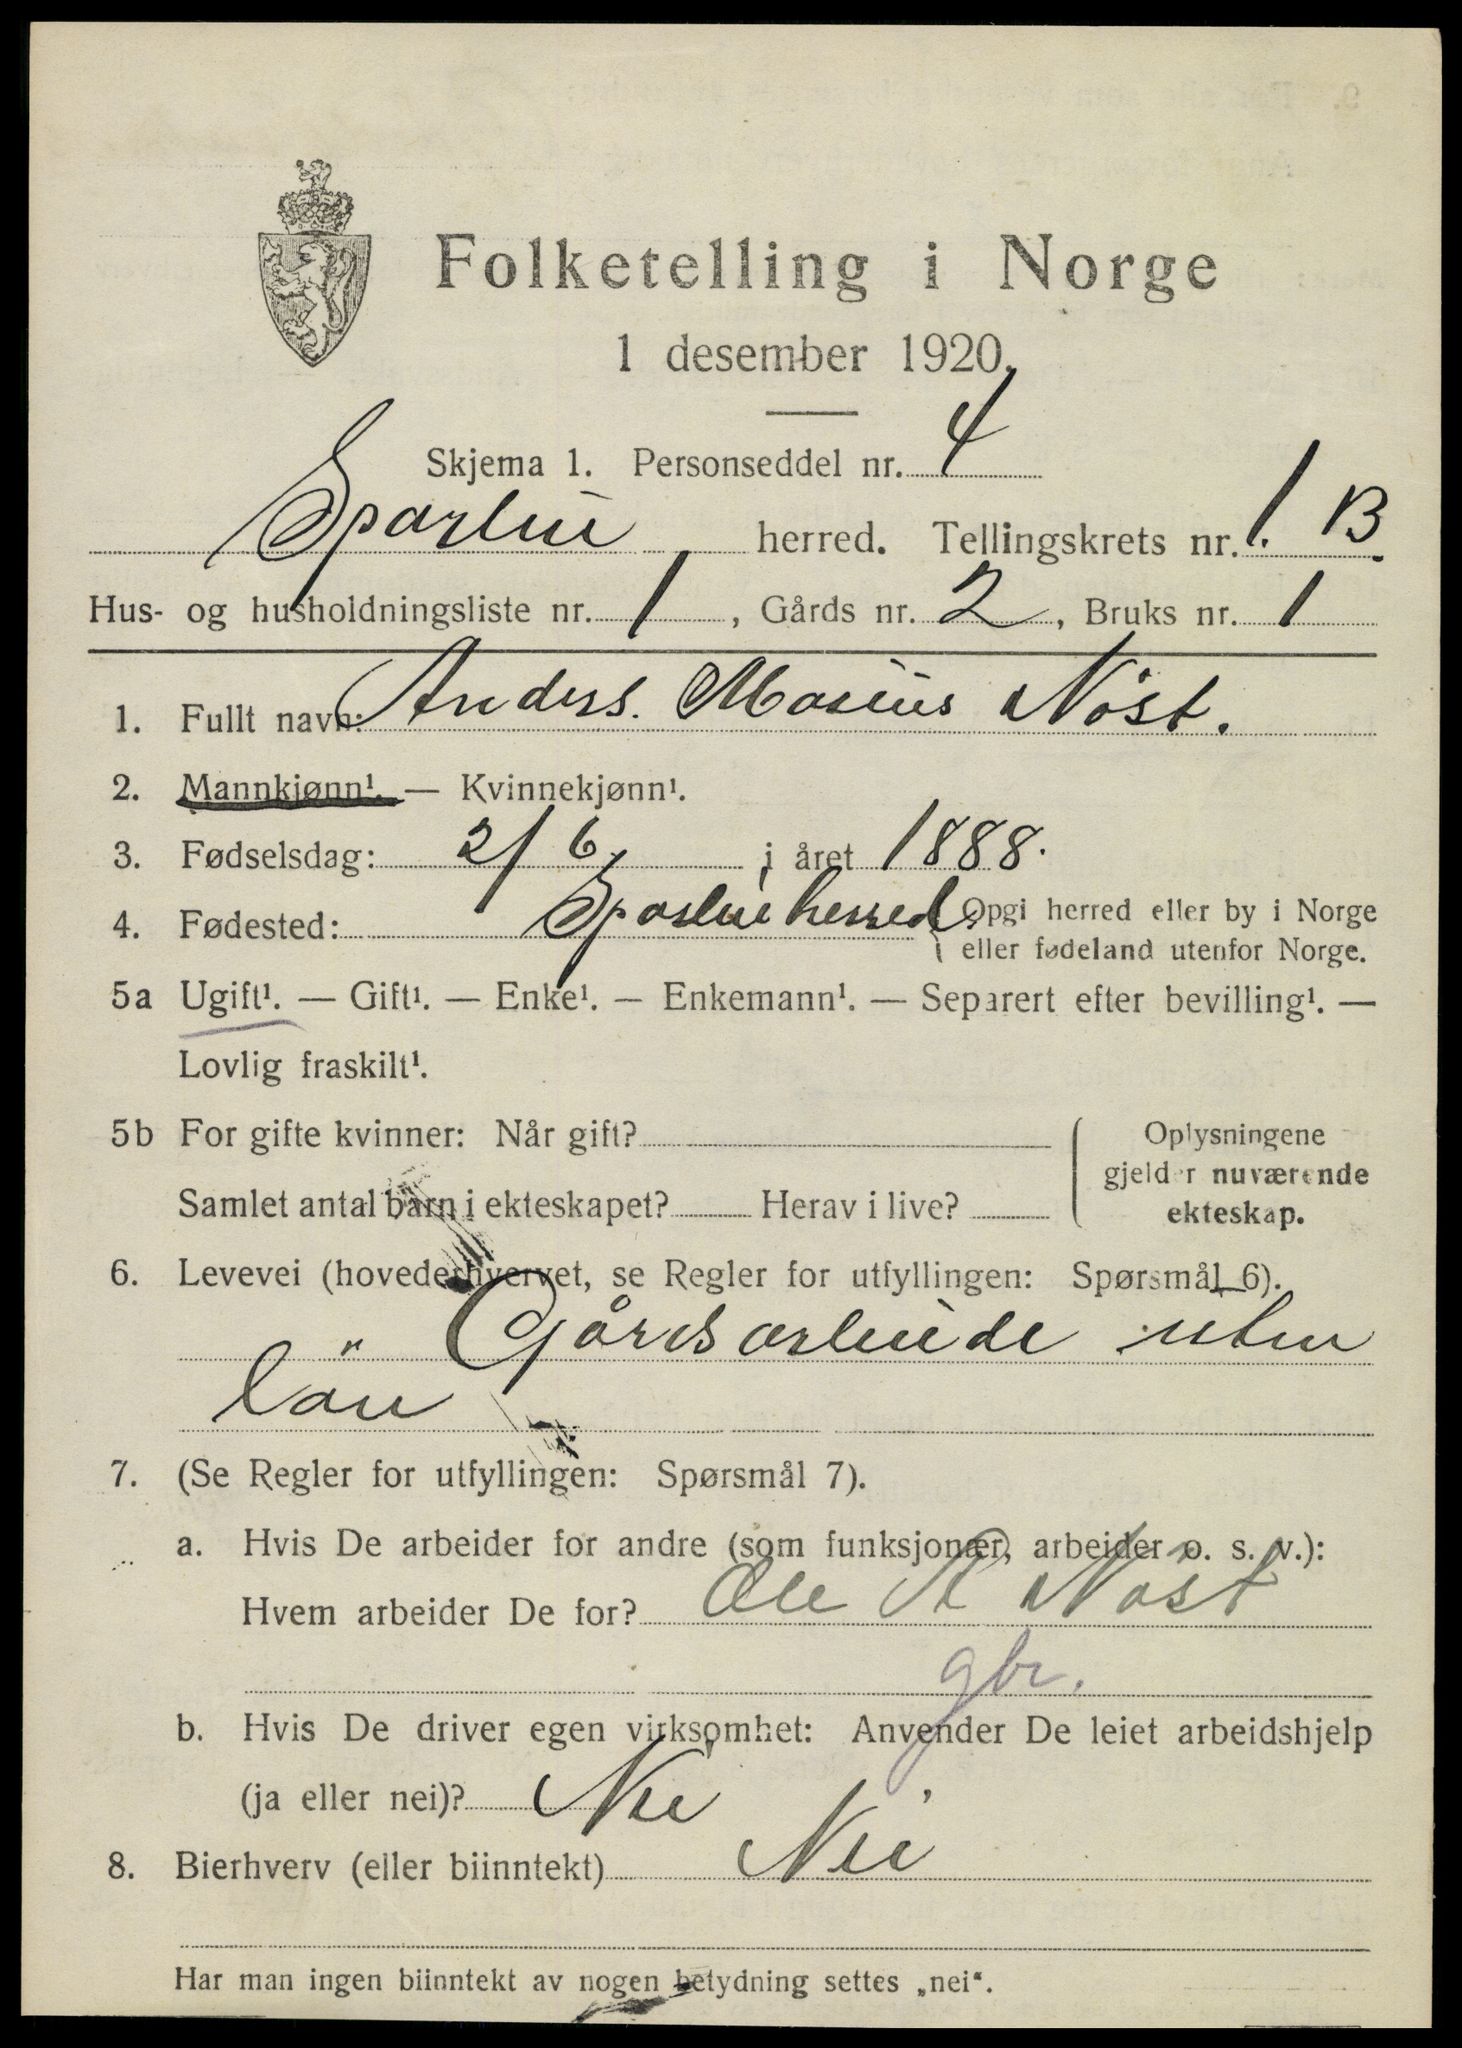 Folketelling i Norge
1 desember 1920.
Skjema 1. Personseddel nr. 4
Sparbu herred. Tellingskrets nr. 1. B.
Hus- og husholdningsliste nr. 1, Gårds nr. 2, Bruks nr. 1
1. Fullt navn: Anders. Marius Nöst.
2. Mannkjønn¹. — Kvinnekjønn¹.
3. Fødselsdag: 2/6 i året 1888.
4. Fødested: Sparbu herred. Opgi herred eller by i Norge
eller fødeland utenfor Norge.
5a Ugift¹. — Gift¹. — Enke¹. — Enkemann¹. — Separert efter bevilling¹. —
Lovlig fraskilt¹.
5b For gifte kvinner: Når gift? Oplysningene
gjelder nuværende
Samlet antal barn i ekteskapet? Herav i live? ekteskap.
6. Levevei (hovederhvervet, se Regler for utfyllingen: Spørsmål 6).
Gårdsarbeide uten
lön
7. (Se Regler for utfyllingen: Spørsmål 7).
a. Hvis De arbeider for andre (som funksjonær, arbeider o. s. v.):
Hvem arbeider De for? Ole A Nöst
gbr.
b. Hvis De driver egen virksomhet: Anvender De leiet arbeidshjelp
(ja eller nei)? Nei
8. Bierhverv (eller biinntekt) Nei
Har man ingen biinntekt av nogen betydning settes „nei“.